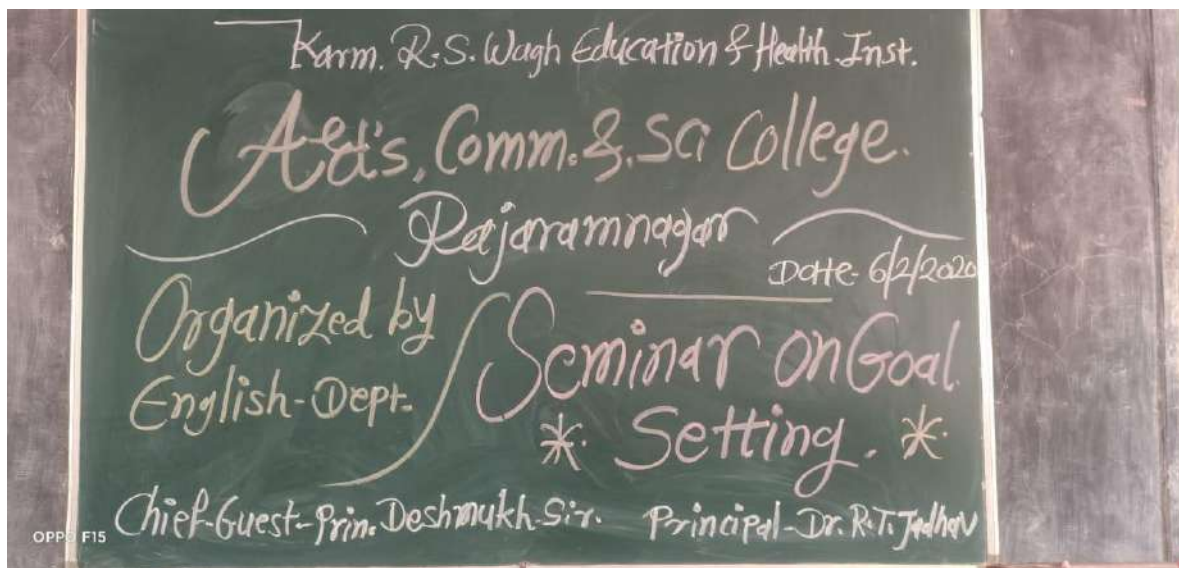 Karm. R.S. Wagh Education & Health Inst.
Art's, Comm. & Sci College.
Rajaramnagar
Date- 6/2/2020
Organized by
English-Dept.
Seminar on Goal
Setting.
Chief-Guest-Prin. Deshmukh-Sir. Principal-Dr. R.T. Jadhav
OPPO F15